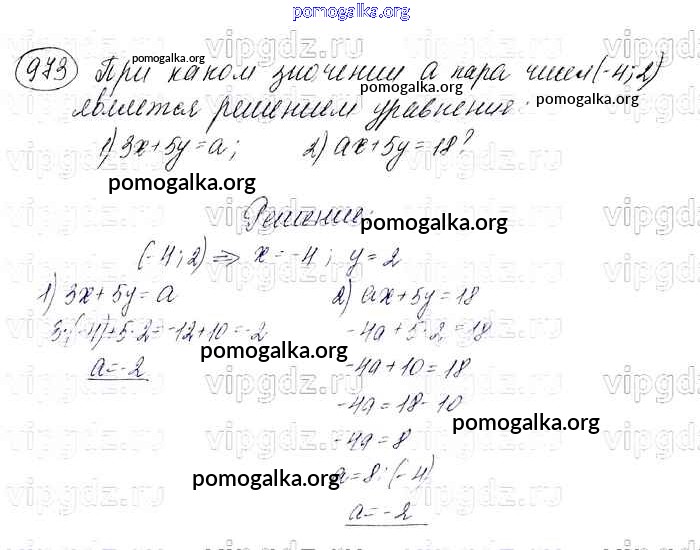 pomogalka.org
973 При каком значении а пара чисел (-4; 2)
является решением уравнения:
1) 3x+5y=a; 2) ax+5y=18?
pomogalka.org
pomogalka.org
pomogalka.org
pomogalka.org
Решение:
pomogalka.org
(-4; 2) ⇒ x=-4; y=2
1) 3x+5y=a
3·(-4)+5·2=-12+10=-2
a=-2
2) ax+5y=18
-4a+5·2=18
-4a+10=18
-4a=18-10
-4a=8
a=8:(-4)
a=-2
pomogalka.org
pomogalka.org
pomogalka.org
vipgdz.ru vipgdz.ru vipgdz.ru vipgdz.ru